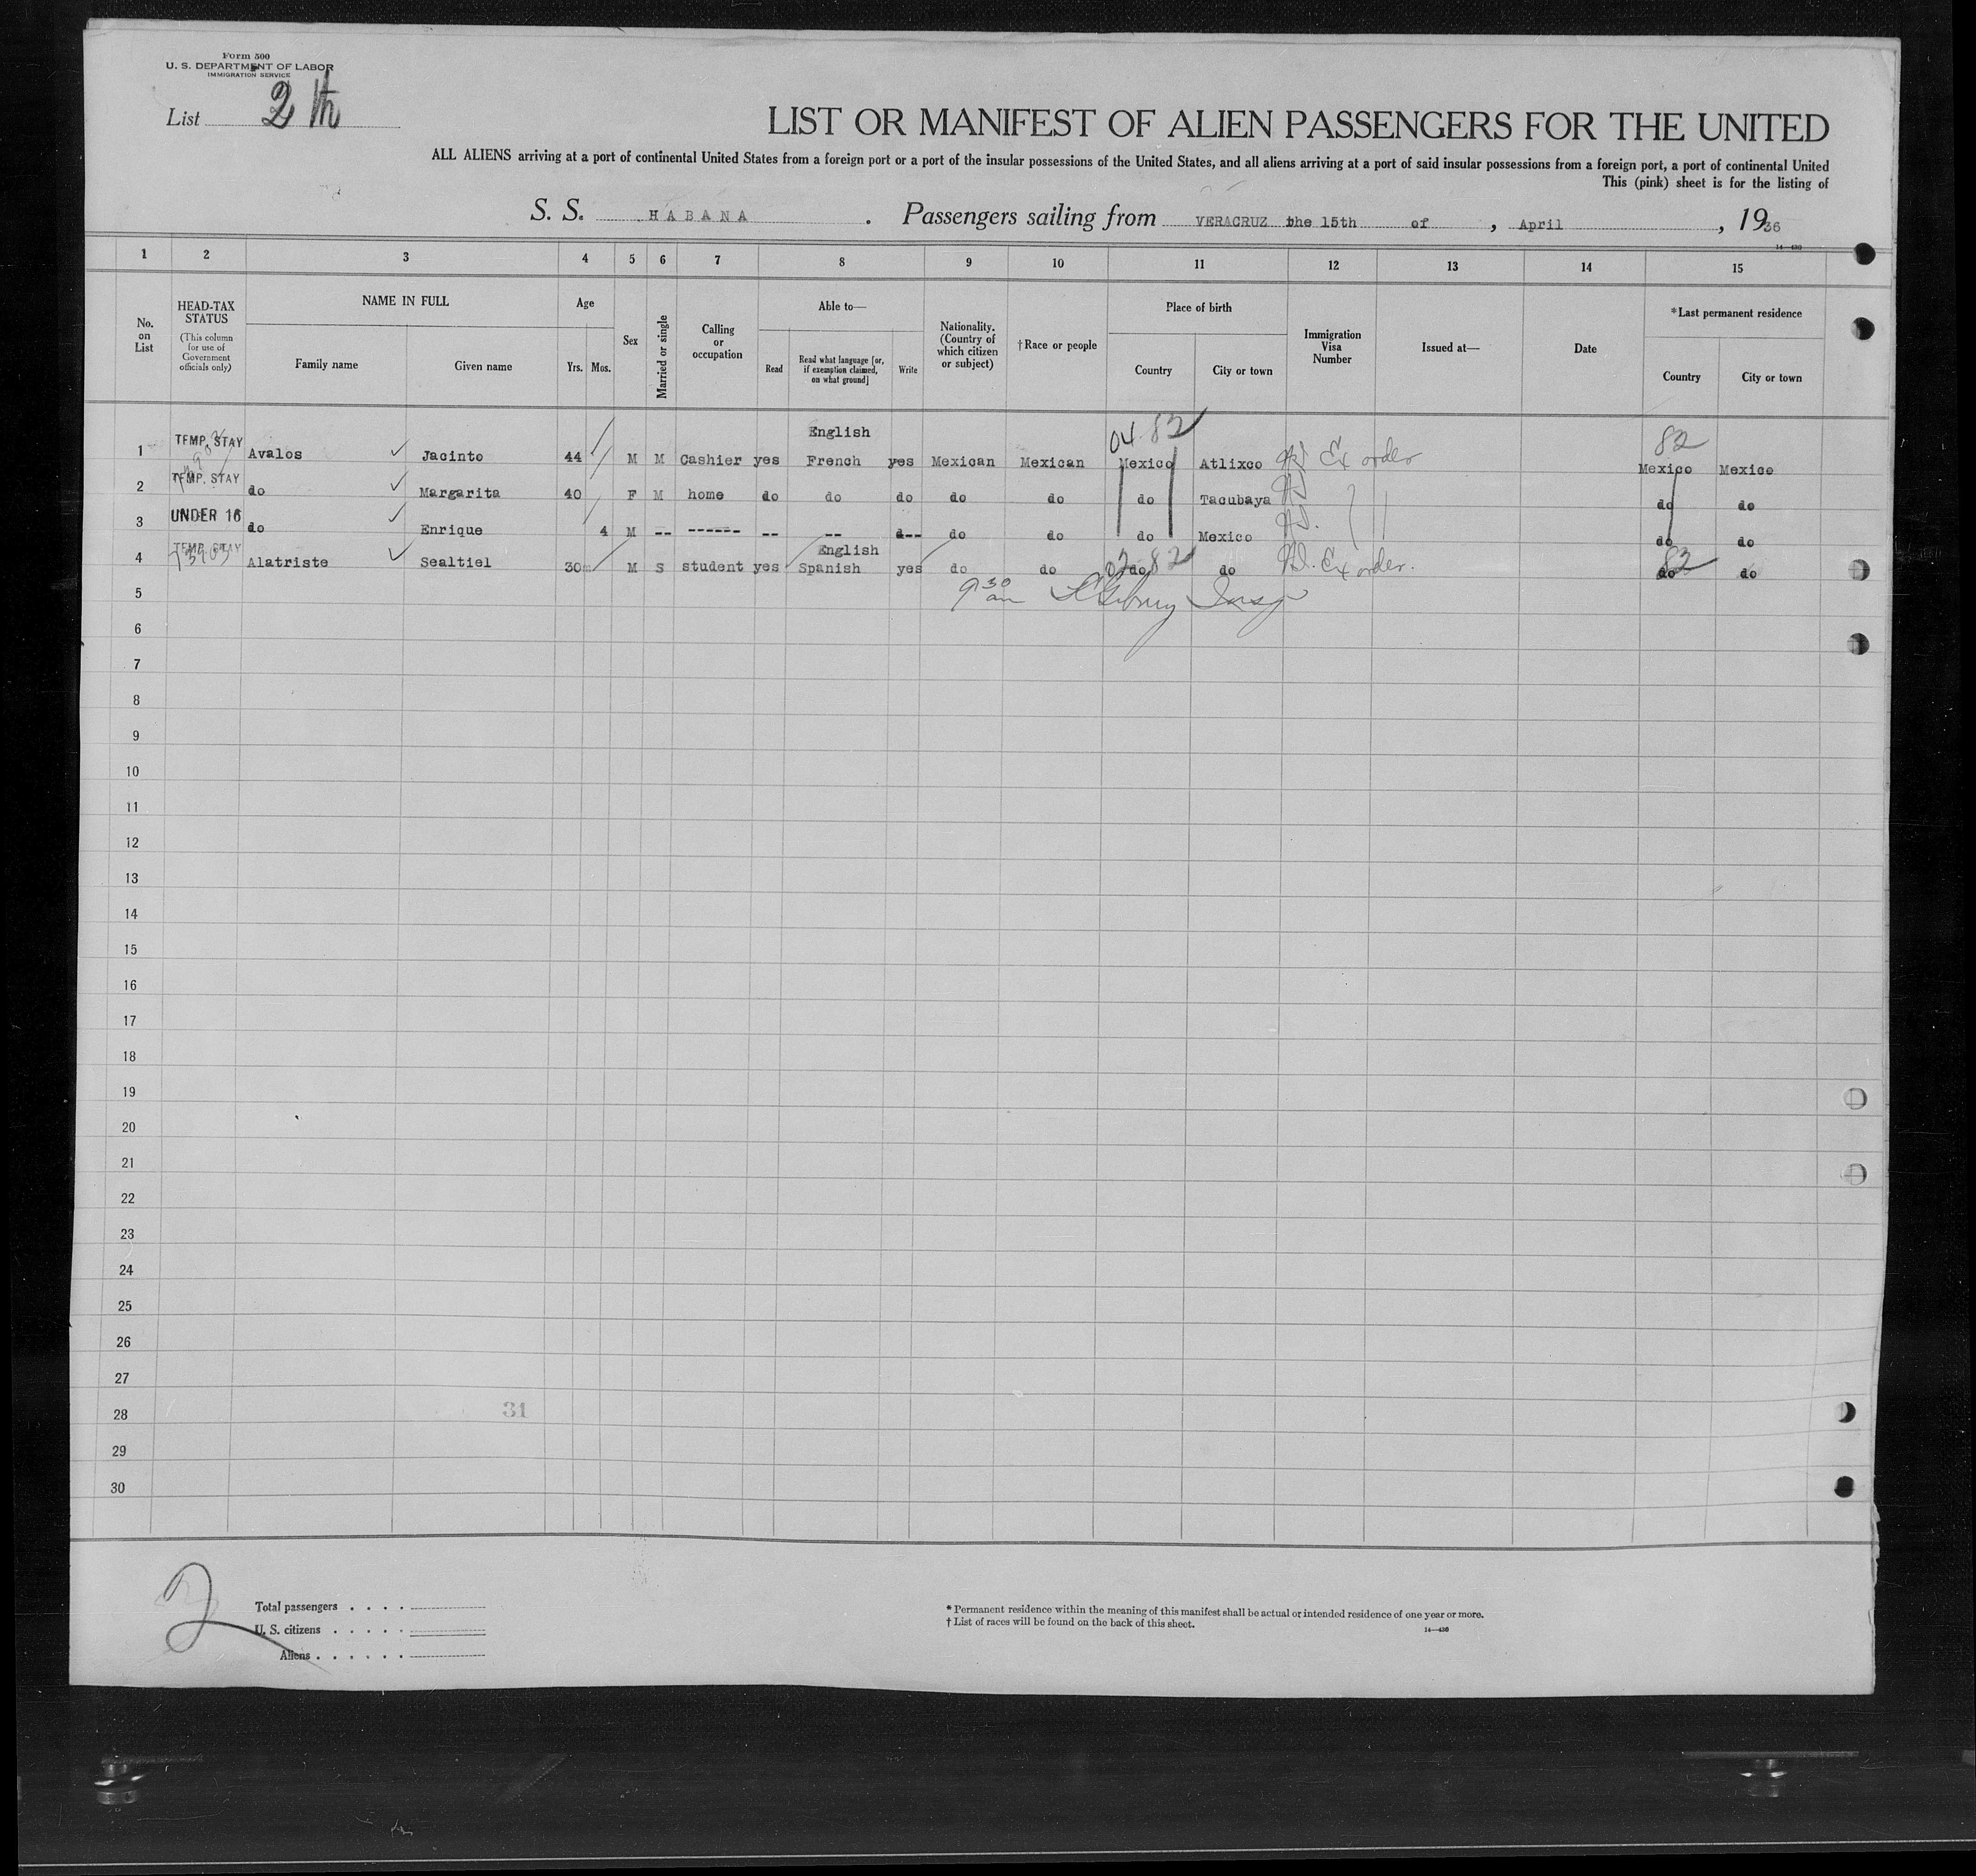 Form 500
U. S. DEPARTMENT OF LABOR
IMMIGRATION SERVICE
List 2 th
LIST OR MANIFEST OF ALIEN PASSENGERS FOR THE UNITED
ALL ALIENS arriving at a port of continental United States from a foreign port or a port of the insular possessions of the United States, and all aliens arriving at a port of said insular possessions from a foreign port, a port of continental United
This (pink) sheet is for the listing of
S. S. HABANA . Passengers sailing from VERACRUZ the 15th of , April , 1936
14—430
1 2 3 4 5 6 7 8 9 10 11 12 13 14 15
No. on List
HEAD-TAX STATUS
(This column for use of Government officials only)
NAME IN FULL
Family name Given name
Age
Yrs. Mos.
Sex
Married or single
Calling or occupation
Able to—
Read
Read what language [or, if exemption claimed, on what ground]
Write
Nationality. (Country of which citizen or subject)
†Race or people
Place of birth
Country City or town
Immigration Visa Number
Issued at—
Date
*Last permanent residence
Country City or town
English 04 82 82
1 TEMP. STAY Avalos Jacinto 44 M M Cashier yes French yes Mexican Mexican Mexico Atlixco Ex order Mexico Mexico
2 TEMP. STAY do Margarita 40 F M home do do do do do do Tacubaya do do
3 UNDER 16 do Enrique 4 M -- ------ -- -- -- do do do Mexico do do
English 82 82
4 TEMP. STAY Alatriste Sealtiel 30 M S student yes Spanish yes do do do do Ex order. do do
5 9 30 am Insp
6
7
8
9
10
11
12
13
14
15
16
17
18
19
20
21
22
23
24
25
26
27
28 31
29
30
2
Total passengers . . . .
U. S. citizens . . . . .
Aliens . . . . . .
* Permanent residence within the meaning of this manifest shall be actual or intended residence of one year or more.
† List of races will be found on the back of this sheet.
14—430